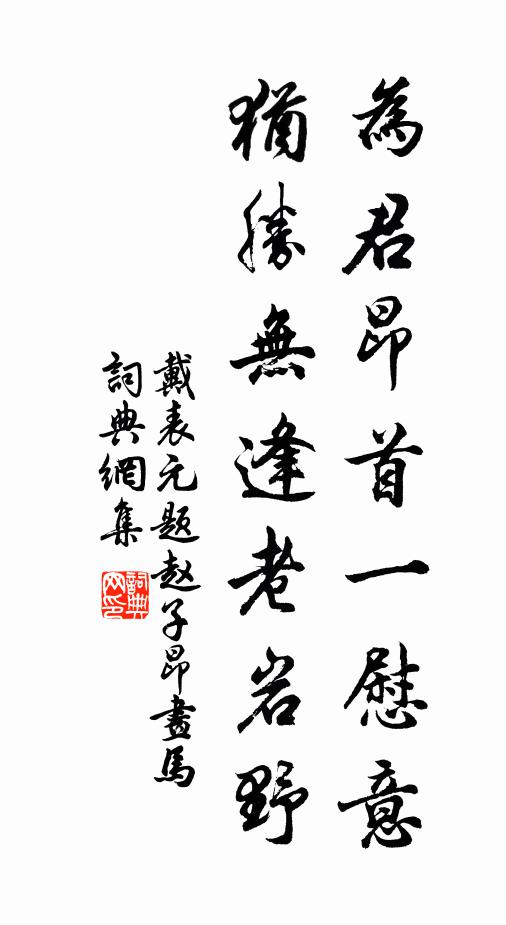 為君昂首一慰意
猶勝無逢老岩野
戴表元題赵子昂畫馬
詞典網集
詞典
网印